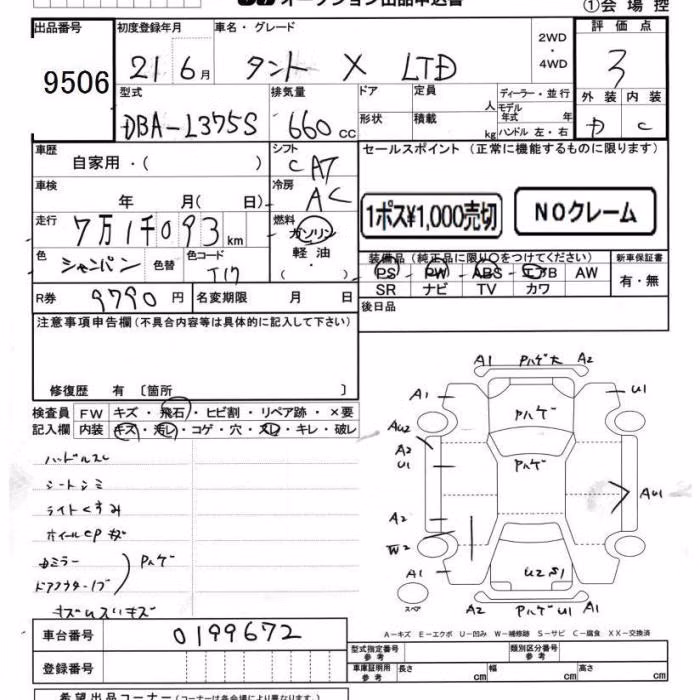 オークション出品申込書
①会場控
出品番号 初度登録年月 車名・グレード 2WD ・ 4WD 評価点
9506 21 6月 タント X LTD 3
型式 排気量 ドア 定員 人 ディーラー・並行 外装 内装
モデル年式 年
DBA-L375S 660cc 形状 積載 kg ハンドル 左・右 D C
車歴 シフト セールスポイント (正常に機能するものに限ります)
自家用・( ) C AT
車検 冷房
年 月( 日) AC
1ポス¥1,000売切 NOクレーム
走行 燃料
7万1千093km ガソリン
軽油
・( )
色 色替 色コード
シャンパン T17
装備品 (純正品に限り○をつけてください) 新車保証書
PS PW ABS エアB AW 有・無
SR ナビ TV カワ
R券 9790円 名変期限 月 日 後日品
注意事項申告欄(不具合内容等は具体的に記入して下さい)
修復歴 有 〔箇所 〕
検査員 FW キズ・飛石・ヒビ割・リペア跡・×要
記入欄 内装 キズ・汚レ・コゲ・穴・スレ・キレ・破レ
ハンドルスレ
シートシミ
ライトくすみ
ホイールCPキズ
Dミラー
ドアアウターノブ Pハゲ
キズ U スレ キズ
A1 Pハゲ大 A2
A1 Pハゲ U1
AU2
A2
U1 Pハゲ
AU1
A2
W2
A1 U2 S1 A1
スペア A2 Pハゲ U1 A1
A-キズ E-エクボ U-凹み W-補修跡 S-サビ C-腐食 XX-交換済
車台番号 0199672
型式指定番号 参考 類別区分番号 参考
登録番号 車庫証明用 参考 長さ cm 幅 cm 高さ cm
希望出品コーナー (コーナーは各会場により異なります。)